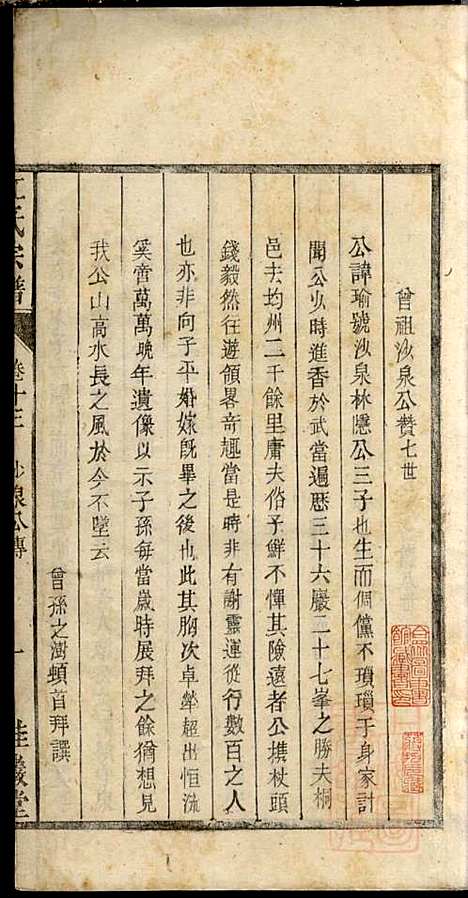 曾祖沙泉公贊七世
公諱瑜號沙泉林隱公三子也生而倜儻不瑣瑣于身家計
聞公少時進香於武當遍歴三十六巖二十七峯之勝夫桐
邑去均州二千餘里庸夫俗子鮮不憚其險遠者公携杖頭
錢毅然往遊領畧奇趣當是時非有謝靈運從行數百之人
也亦非向子平婚嫁既畢之後也此其胸次卓犖超出恒流
奚啻萬萬晚年遺像以示子孫每當歲時展拜之餘猶想見
我公山高水長之風於今不墜云
曾孫之澍頓首拜譔
江氏宗譜 卷十三 沙泉公傳 一 桂巖堂